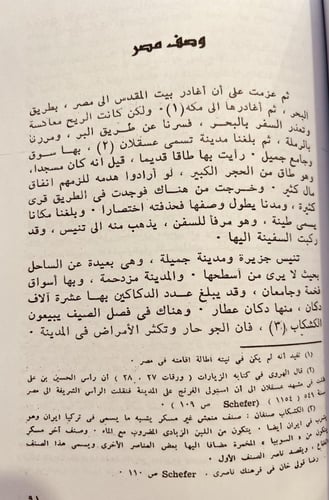 وصف مصر
ثم عزمت على أن أغادر بيت المقدس الى مصر ، بطريق
البحر ، ثم أغادرها الى مكه (١) ٠ ولكن كانت الريح معاكسة
وتعذر السفر بالبحر ، فسرنا عن طريق البر ، ومررنا
بالرملة ، ثم بلغنا مدينة تسمى عسقلان (٢) ، بها سوق
وجامع جميل ٠ رأيت بها طاقا قديما ، قيل انه كان مسجدا،
وهو طاق من الحجر الكبير ، لو أرادوا هدمه للزمهم انفاق
مال كثير ٠ وخرجت من هناك فوجدت في الطريق قرى
كثيرة ، ومدنا يطول وصفها فحذفته اختصارا ٠ وبلغنا مكانا
يسمى طينة ، وهو مرفأ للسفن ، يذهب منه الى تنيس ، وقد
ركبت السفينة اليها ٠
تنيس جزيرة ومدينة جميلة ، وهى بعيدة عن الساحل
بحيث لا يرى من أسطحها ٠ والمدينة مزدحمة ، وبها أسواق
فخمة وجامعان ، وقد يبلغ عدد الدكاكين بها عشرة آلاف
دكان ، منها دكان عطار ٠ وهناك في فصل الصيف يبيعون
الكشكاب (٣) ، فان الجو حار وتكثر الأمراض في المدينة ٠
(١) تفيد أنه لم يكن في نيته اطالة اقامته في مصر ٠
(٢) قال الهروى في كتابه الزيارات ( ورقات ٢٧ ، ٢٨ ) أن رأس الحسين بن على
كانت في مشهد عسقلان الى أن استولى الفرنج على المدينة فنقلت الرأس الشريفة الى مصر
سنة ٥٤٩ ( ١١٥٤ ) ( Schefer ص ١٠٩ ) ٠
(٣) الكشكاب صنفان : صنف منعش غير مسكر يشبه ما يسمى في تركيا ايران وهو
يشرب في ايران أيضا ٠ يتكون من اللبن الزبادى المضروب مع الماء ٠ وصنف آخر مسكر
يتكون من « السوبيا » المخمرة مضافا اليها بعض العناصر الأخرى ويسمى هذا الصنف
، ويقصد ناصر الصنف الأول ٠
رضا قولى خان في فرهنك ناصرى ٠ Schefer ص ١١٠ ٠
٩١